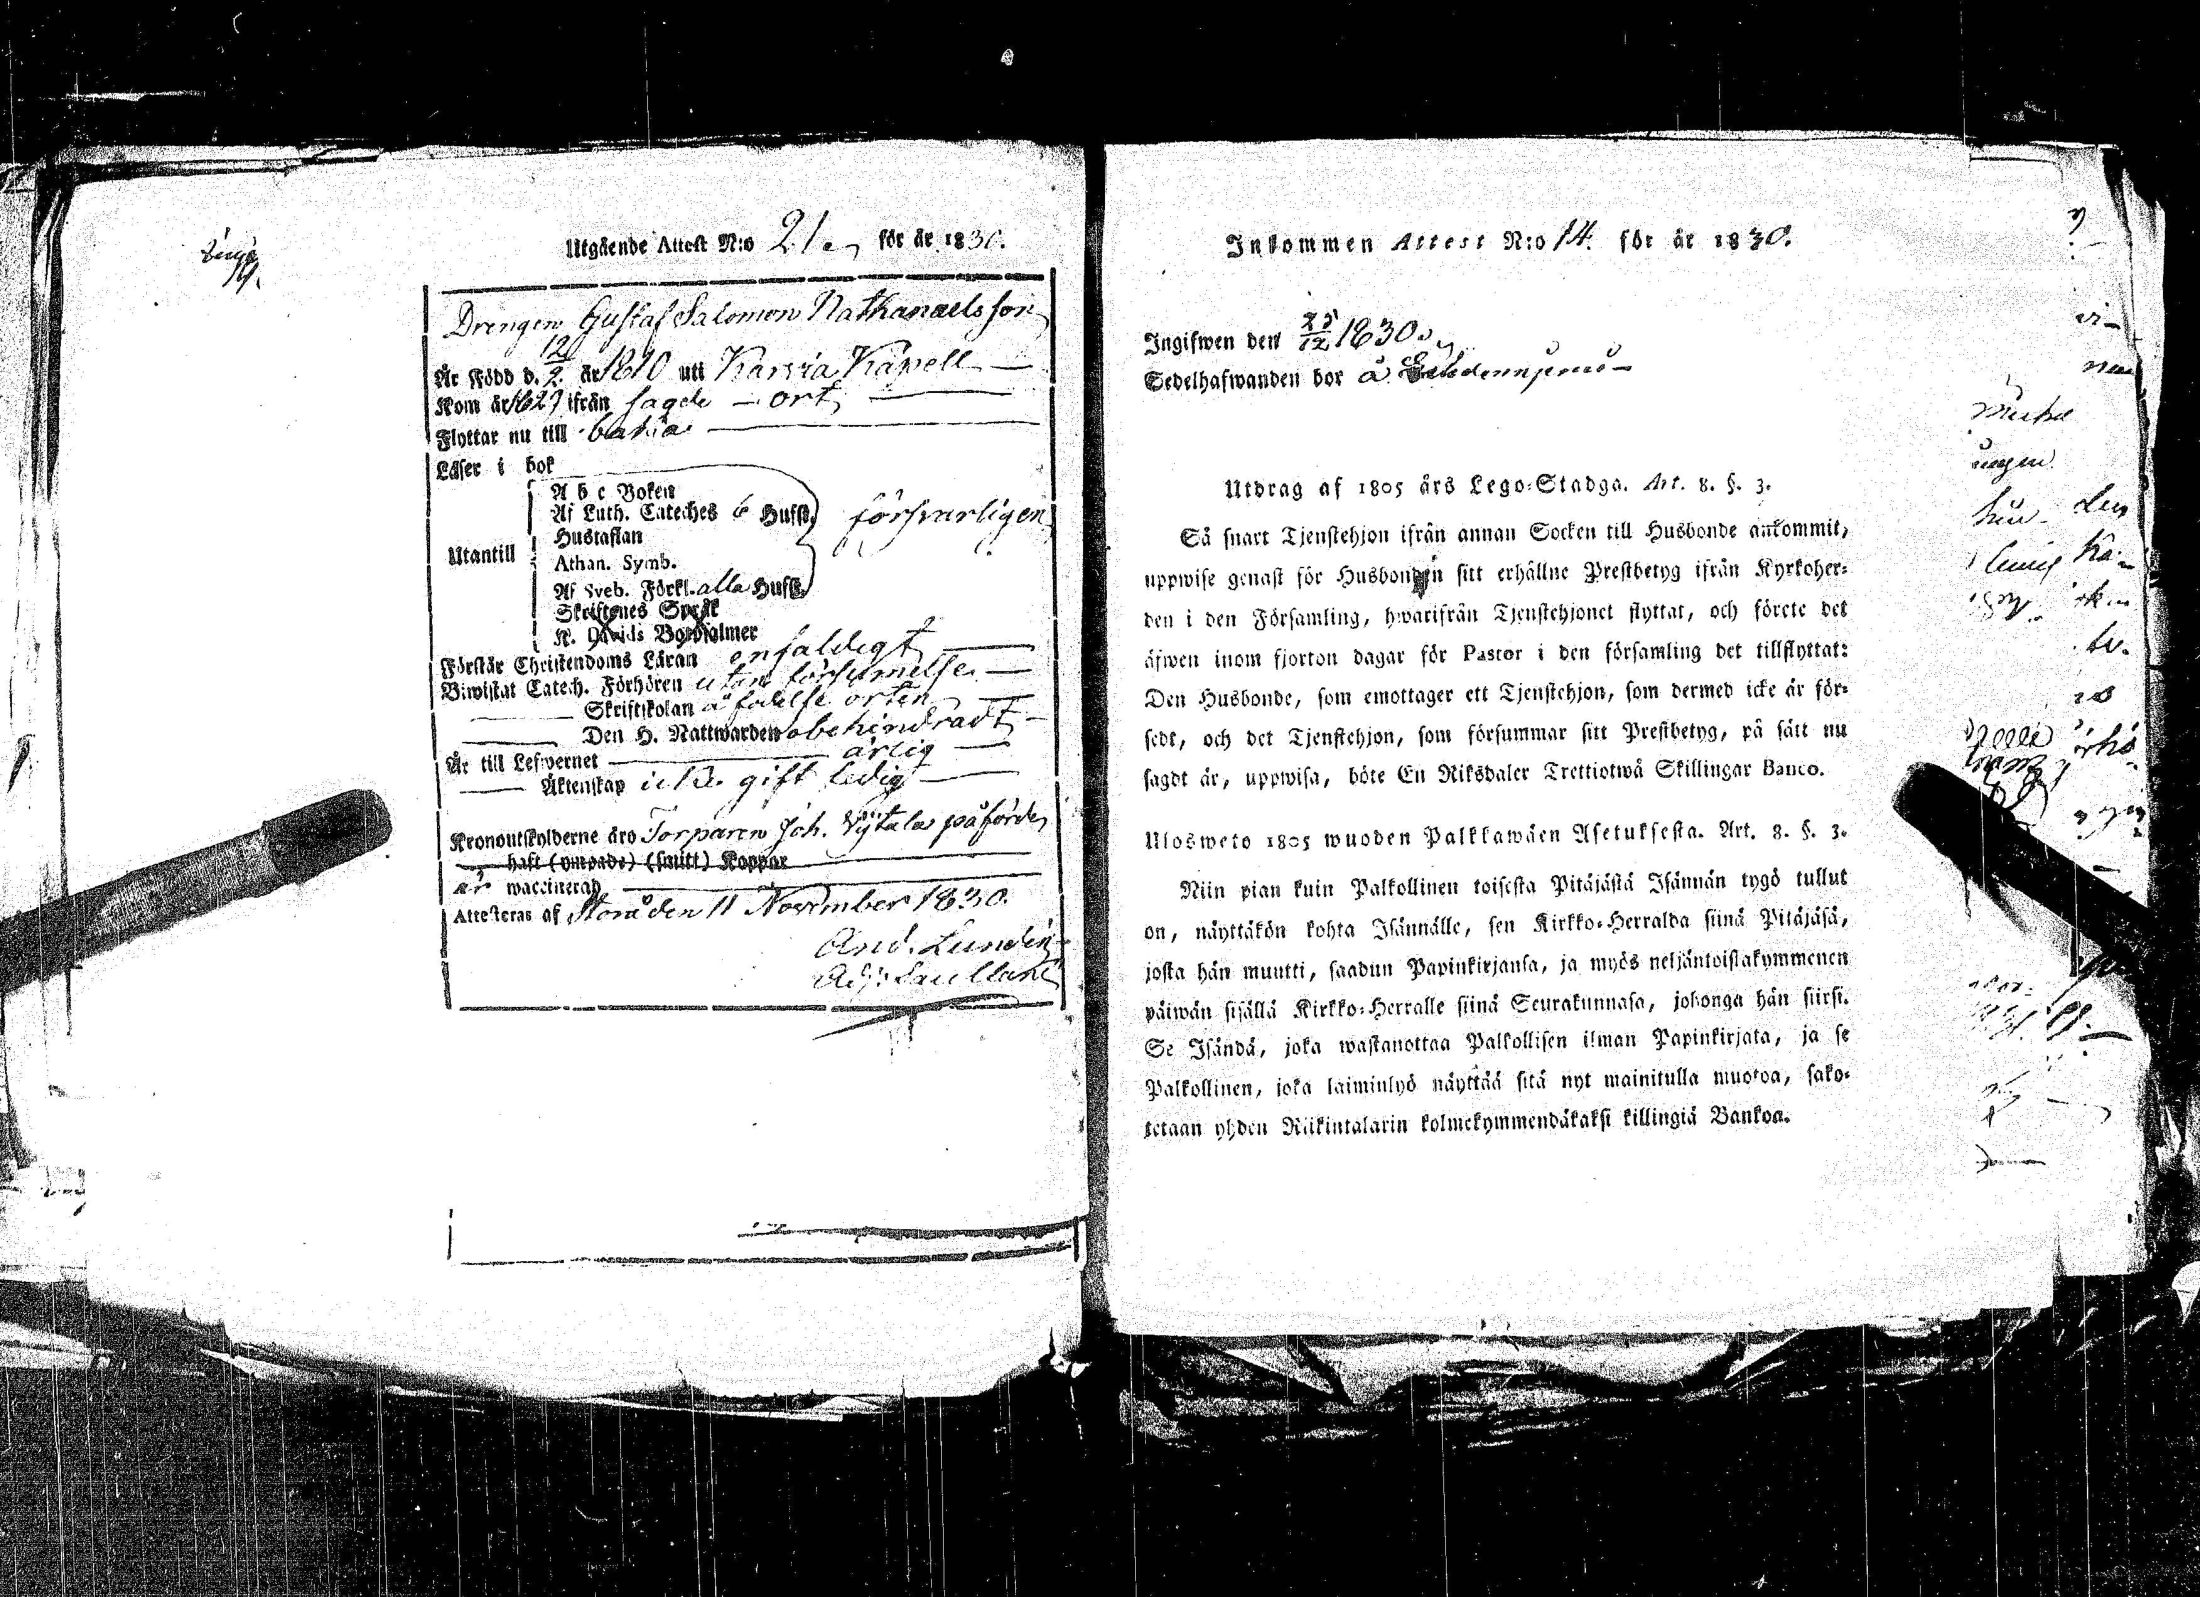 Utgående Attest N:o 21. för år 1830.
Drengen Gustaf Salomon Nathanaelsson
Är född d. 12/2 år 1810 uti Karvia Kapell —
Kom år 1829 ifrån sagde — ort, —
Flyttar nu till baka —
Läser i bok
Utantill
A b c Boken
Af Luth. Cateches 6 Hufst.
försvarligen
Hustaflan
Athan. Symb.
Af Sveb. Förkl. alla Hufst.
Skriftenes Språk
K. Davids Botpsalmer
Förstår Christendoms Läran enfaldigt —
Biwistat Catech. Förhören utan försumelse —
— Skriftskolan å födelse orten —
— Den H. Nattwarden obehindradt —
Är till Lefwernet — ärlig —
— Äktenskap icke gift ledig —
Kronoutskylderne äro Torparen Joh. påförde,
haft (ympade) (smitt) Koppor
är waccinerad
Attesteras af Storå den 11 November 1830.
And. Lundén
Inkommen Attest N:o 14. för år 1830.
Ingifwen den 25/12 1830.
Sedelhafwanden bor å
Utdrag af 1805 års Lego-Stadga. Art. 8. §. 3.
Så snart Tjenstehjon ifrån annan Socken till Husbonde ankommit,
uppwise genast för Husbonden sitt erhållne Prestbetyg ifrån Kyrkoher-
den i den Församling, hwarifrån Tjenstehjonet flyttat, och förete det
äfwen inom fjorton dagar för Pastor i den församling det tillflyttat:
Den Husbonde, som emottager ett Tjenstehjon, som dermed icke är för-
sedt, och det Tjenstehjon, som försummar sitt Prestbetyg, på sätt nu
sagdt är, uppwisa, böte En Riksdaler Trettiotwå Skillingar Banco.
Ulosweto 1805 wuoden Palkkawäen Asetuksesta. Art. 8. §. 3.
Niin pian kuin Palkollinen toisesta Pitäjästä Isännän tygö tullut
on, näyttäkön kohta Isännälle, sen Kirkko-Herralda siinä Pitäjäsä,
josta hän muutti, saadun Papinkirjansa, ja myös neljäntoistakymmenen
päiwän sisällä Kirkko-Herralle siinä Seurakunnasa, johonga hän siirsi.
Se Isändä, joka wastanottaa Palkollisen ilman Papinkirjata, ja se
Palkollinen, joka laiminlyö näyttää sitä nyt mainitulla muotoa, sako-
tetaan yhden Riikintalarin kolmekymmendäkaksi killingiä Bankoa.